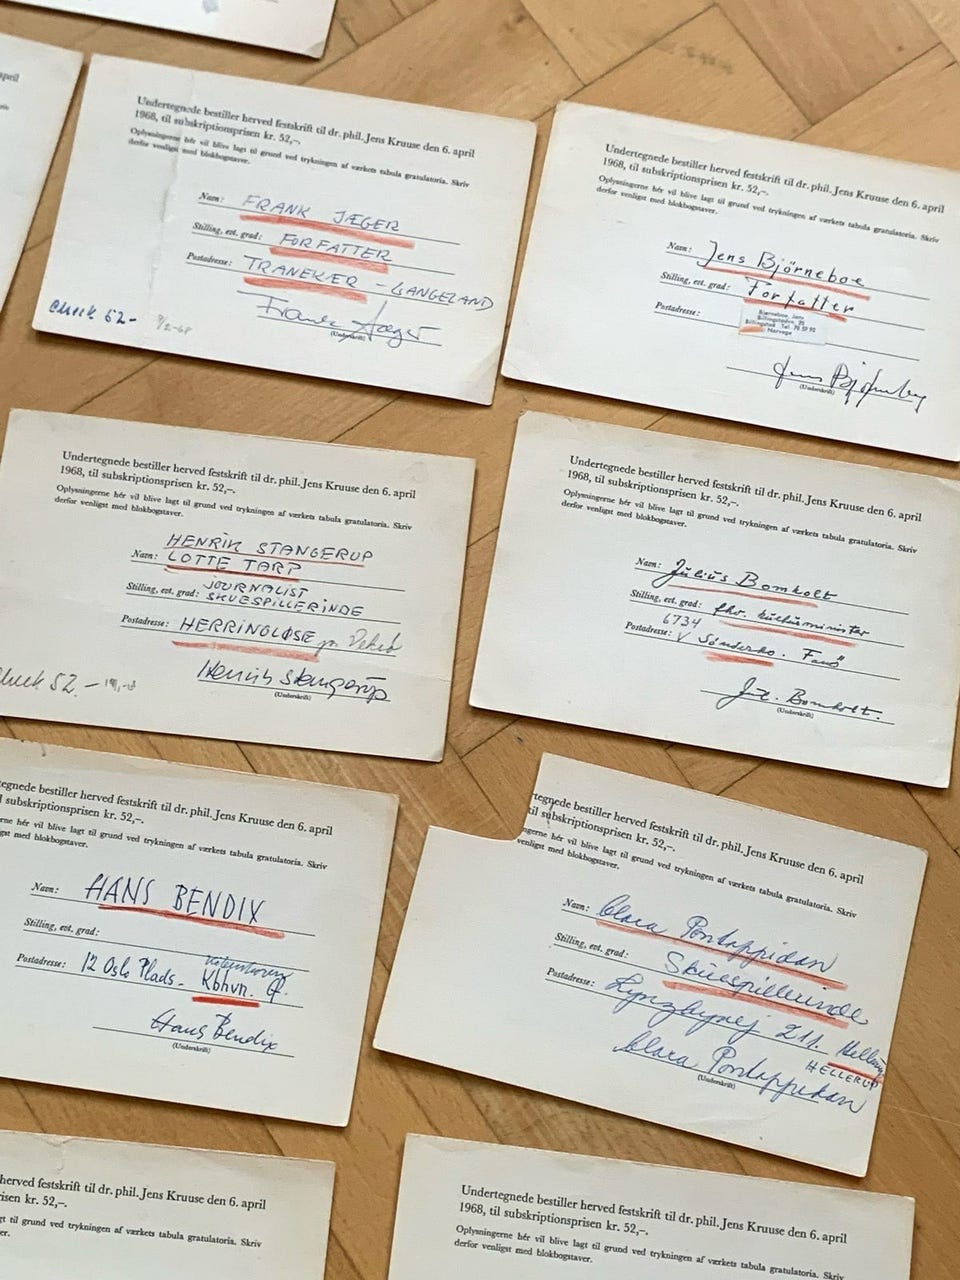 april
Undertegnede bestiller herved festskrift til dr. phil. Jens Kruuse den 6. april
1968, til subskriptionsprisen kr. 52,–.
Oplysningerne hér vil blive lagt til grund ved trykningen af værkets tabula gratulatoria. Skriv
derfor venligst med blokbogstaver.
Navn: FRANK JÆGER
Stilling, evt. grad: FORFATTER
Postadresse: TRANEKÆR – LANGELAND
Frank Jæger
(Underskrift)
Check 52- 9/2-68
Undertegnede bestiller herved festskrift til dr. phil. Jens Kruuse den 6. april
1968, til subskriptionsprisen kr. 52,–.
Oplysningerne hér vil blive lagt til grund ved trykningen af værkets tabula gratulatoria. Skriv
derfor venligst med blokbogstaver.
Navn: Jens Bjørneboe
Stilling, evt. grad: Forfatter
Postadresse:
Bjørneboe, Jens
Norvege
Jens Bjørneboe
(Underskrift)
Undertegnede bestiller herved festskrift til dr. phil. Jens Kruuse den 6. april
1968, til subskriptionsprisen kr. 52,–.
Oplysningerne hér vil blive lagt til grund ved trykningen af værkets tabula gratulatoria. Skriv
derfor venligst med blokbogstaver.
HENRIK STANGERUP
Navn: LOTTE TARP
JOURNALIST
Stilling, evt. grad: SKUESPILLERINDE
Postadresse: HERRINGLØSE pr. Veksø
Henrik Stangerup
(Underskrift)
Check 52.–
Undertegnede bestiller herved festskrift til dr. phil. Jens Kruuse den 6. april
1968, til subskriptionsprisen kr. 52,–.
Oplysningerne hér vil blive lagt til grund ved trykningen af værkets tabula gratulatoria. Skriv
derfor venligst med blokbogstaver.
Navn: Julius Bomholt
Stilling, evt. grad: fhv. kulturminister
6734
Postadresse: Sønderho. Fanø
Jul. Bomholt.
(Underskrift)
egnede bestiller herved festskrift til dr. phil. Jens Kruuse den 6. april
til subskriptionsprisen kr. 52,–.
ne hér vil blive lagt til grund ved trykningen af værkets tabula gratulatoria. Skriv
gst med blokbogstaver.
Navn: HANS BENDIX
Stilling, evt. grad:
Postadresse: 12 Oslo Plads. Kbhvn. Ø.
Hans Bendix
(Underskrift)
rtegnede bestiller herved festskrift til dr. phil. Jens Kruuse den 6. april
til subskriptionsprisen kr. 52,–.
ngerne hér vil blive lagt til grund ved trykningen af værkets tabula gratulatoria. Skriv
venligst med blokbogstaver.
Navn: Clara Pontoppidan
Stilling, evt. grad: Skuespillerinde
Postadresse: Lyngbyvej 211. Hellerup
HELLERUP
Clara Pontoppidan
(Underskrift)
he bestiller herved festskrift til dr. phil. Jens Kruuse den 6. april
risen kr. 52,–.
gt til grund ved trykningen af værkets tabula gratulatoria. Skriv
er.
Undertegnede bestiller herved festskrift til dr. phil. Jens Kruuse den 6. april
1968, til subskriptionsprisen kr. 52,–.
Oplysningerne hér vil blive lagt til grund ved trykningen af værkets tabula gratulatoria. Skriv
derfor venligst med blokbogstaver.